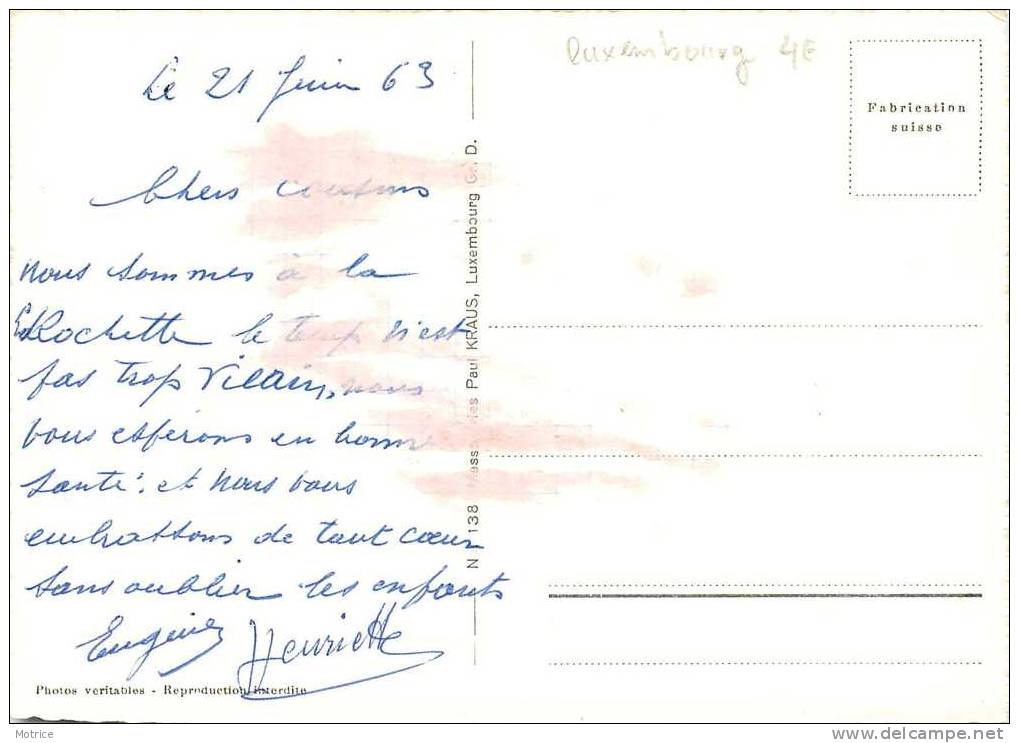 Luxembourg 4E
Fabrication
suisse
Le 21 Juin 63
Chers cousins
nous sommes à la
Rochette le temps n'est
pas trop vilain, nous
vous espérons en bonne
santé. et nous vous
embrassons de tout cœur
sans oublier les enfants
Eugénie Henriette
Photos veritables - Reproduction interdite
Paul KRAUS, Luxembourg Gr. D.
Motrice
http://www.delcampe.net